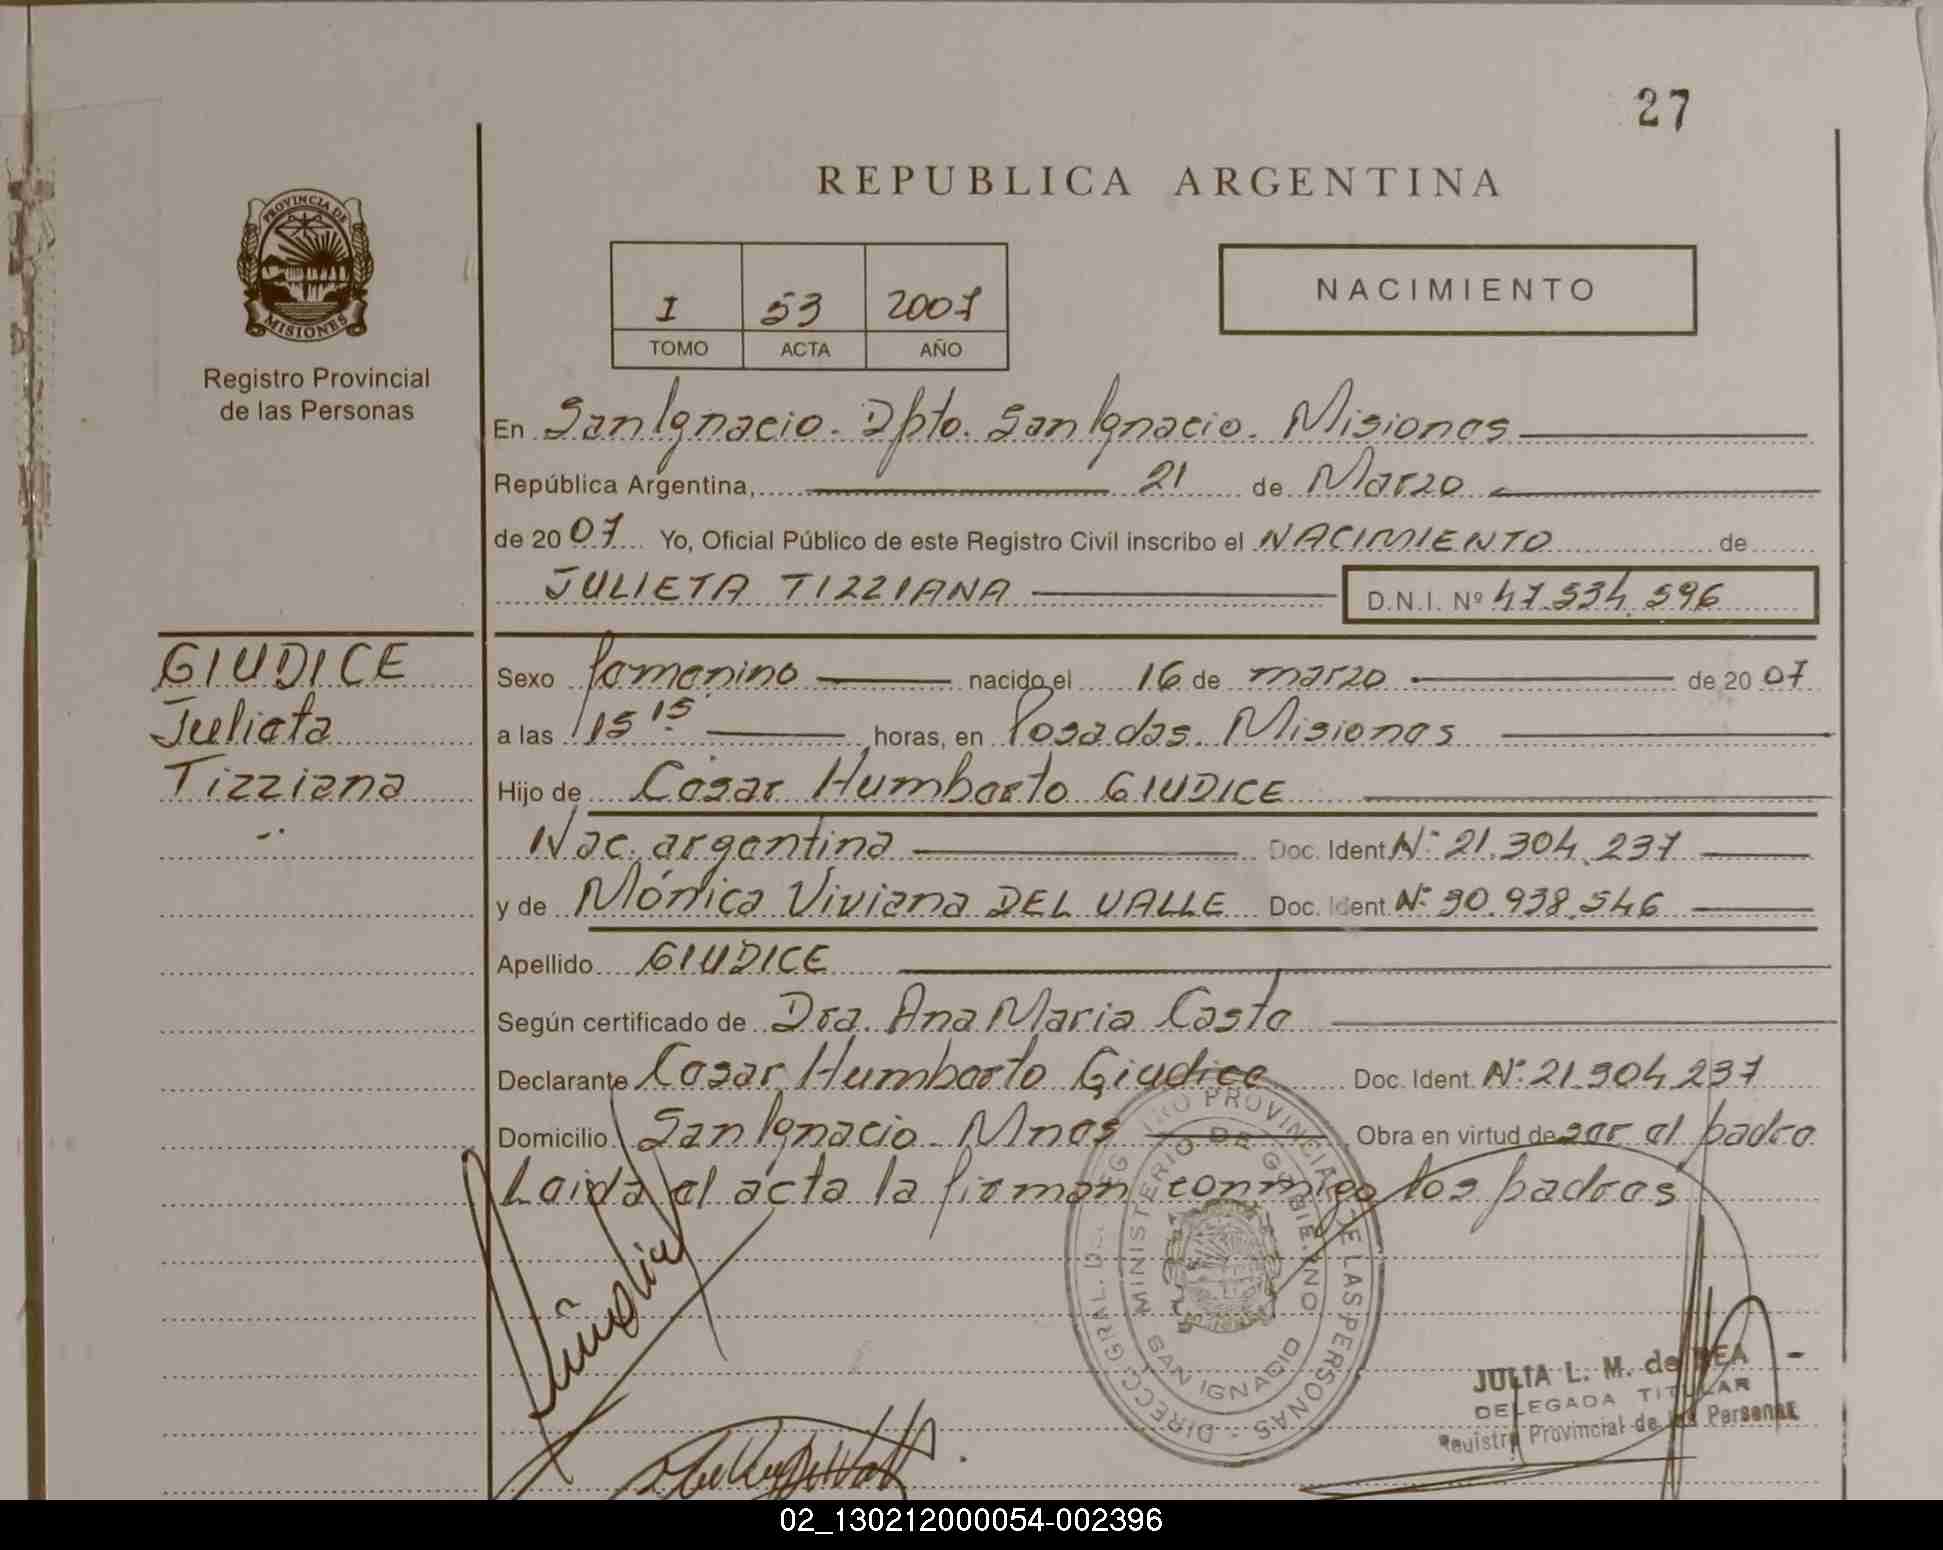 27
REPUBLICA ARGENTINA
PROVINCIA DE
MISIONES
Registro Provincial
de las Personas
I 53 2007
TOMO ACTA AÑO
NACIMIENTO
En San Ignacio. Dpto. San Ignacio. Misiones
República Argentina, 21 de Marzo
de 2007 Yo, Oficial Público de este Registro Civil inscribo el NACIMIENTO de
JULIETA TIZZIANA D.N.I. Nº 47.534.596
GIUDICE
Julieta
Tizziana
Sexo femenino nacido el 16 de marzo de 2007
a las 15 15 horas, en Posadas. Misiones
Hijo de César Humberto GIUDICE
Nac. argentina Doc. Ident. Nº 21.304.237
y de Mónica Viviana DEL VALLE Doc. Ident. Nº 30.938.546
Apellido GIUDICE
Según certificado de Dra. Ana Maria Casto
Declarante Cesar Humberto Giudice Doc. Ident. Nº 21.304.237
Domicilio San Ignacio. Mnes Obra en virtud de ser el padre
Leida el acta la firman conmigo los padres
DIRECC. GRAL. DEL REGISTRO PROVINCIAL DE LAS PERSONAS
MINISTERIO DE GOBIERNO
SAN IGNACIO
JULIA L. M. de REA
DELEGADA TITULAR
Registro Provincial de las Personas
02_130212000054-002396